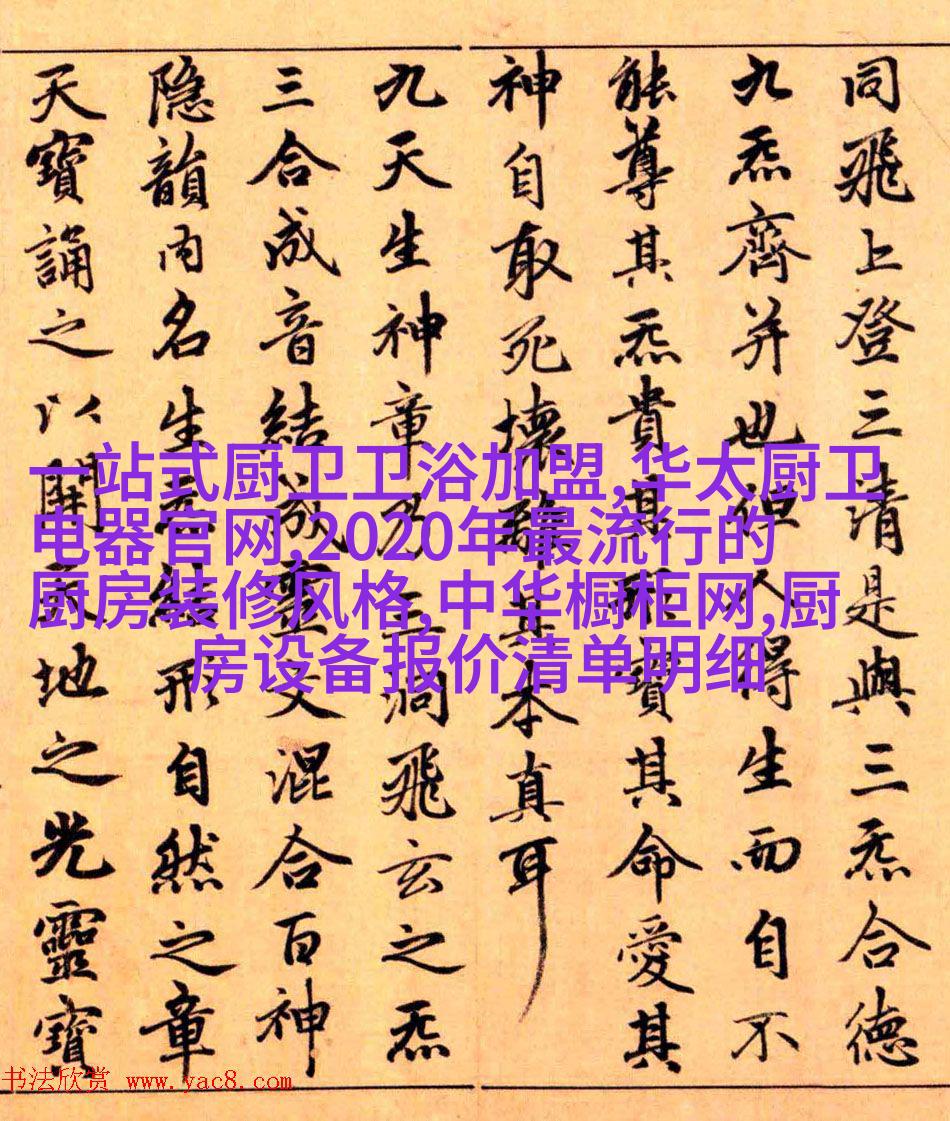 同飛上登三清是與三炁合德
九炁齊并也但人得生而自不
能尊其炁貴其形寶其命愛其
神自取死壞離其本真耳
九天生神章乃三洞飛玄之炁
三合成音結成靈文混合百神
隱韻內名生炁結形自然之章
天寶誦之以開天地之光靈寶
一站式厨卫卫浴加盟,华太厨卫
电器官网,2020年最流行的
厨房装修风格,中华橱柜网,厨
房设备报价清单明细
书法欣赏 www.yac8.com